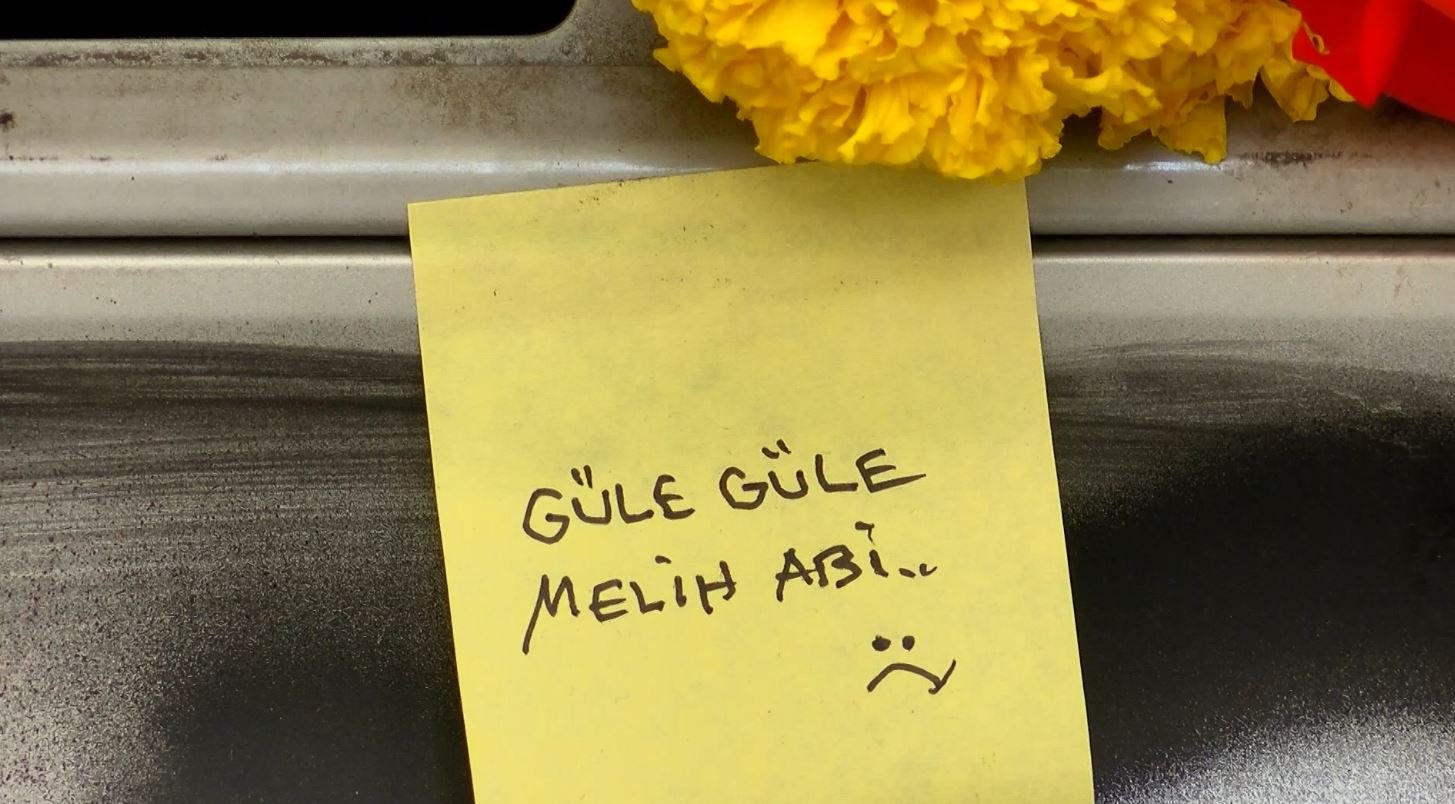 GÜLE GÜLE
MELİH ABİ..